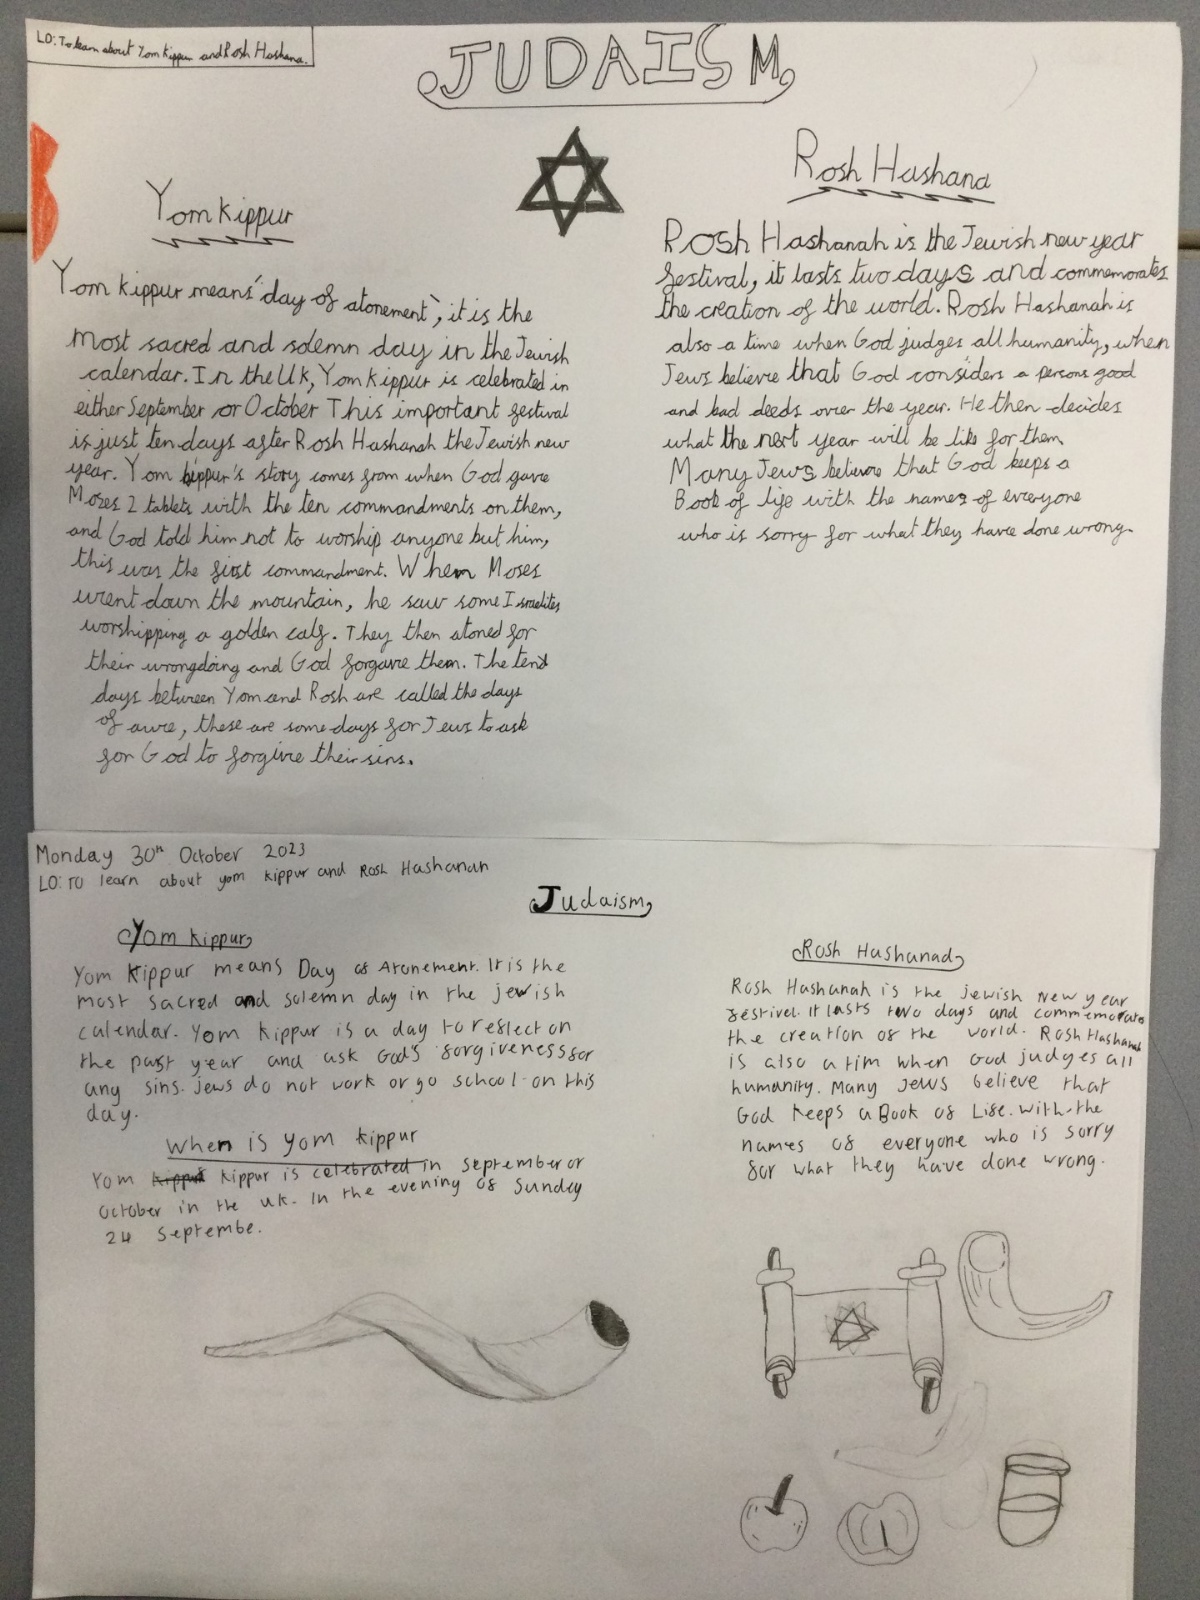 LO: To learn about Yom Kippur and Rosh Hashana.
JUDAISM
Yom Kippur
Yom Kippur means 'day of atonement', it is the
most sacred and solemn day in the Jewish
calendar. In the Uk, Yom Kippur is celebrated in
either September or October This important festival
is just ten days after Rosh Hashanah the Jewish new
year. Yom kippur's story comes from when God gave
Moses 2 tablets with the ten commandments on them,
and God told him not to worship anyone but him,
this was the first commandment. When Moses
went down the mountain, he saw some Israelites
worshipping a golden calf. They then atoned for
their wrongdoing and God forgave them. The ten
days between Yom and Rosh are called the days
of awe, these are some days for Jews to ask
for God to forgive their sins.
Rosh Hashana
Rosh Hashanah is the Jewish new year
festival, it lasts two days and commemorates
the creation of the world. Rosh Hashanah is
also a time when God judges all humanity, when
Jews believe that God considers a persons good
and bad deeds over the year. He then decides
what the next year will be like for them
Many Jews believe that God keeps a
Book of life with the names of everyone
who is sorry for what they have done wrong.
Monday 30th October 2023
LO: TO learn about yom kippur and Rosh Hashanan
Judaism
Yom kippur
Yom Kippur means Day of Atonement. It is the
most sacred and solemn day in the jewish
calendar. Yom Kippur is a day to reflect on
the past year and ask God's forgiveness for
any sins. jews do not work or go school on this
day.
When is yom kippur
Yom kippur is celebrated in september or
october in the uk. In the evening of Sunday
24 Septembe.
Rosh Hashanad
Rosh Hashanah is the jewish New year
festivel. It lasts two days and commemorate
the creation of the world. Rosh Hashanah
is also a tim when God judges all
humanity. Many Jews believe that
God keeps a Book of Life. with the
names of everyone who is sorry
for what they have done wrong.